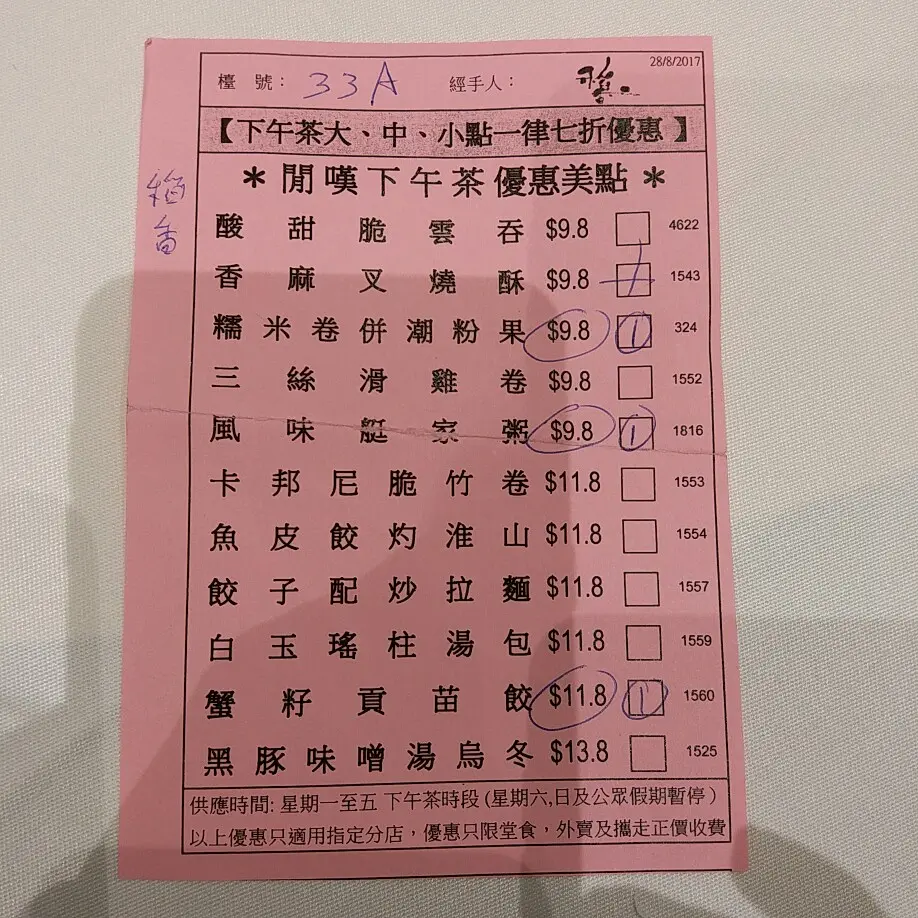 28/8/2017
檯 號： 33A 經手人：
【下午茶大、中、小點一律七折優惠】
* 閒嘆下午茶優惠美點 *
酸甜脆雲吞 $9.8 4622
香麻叉燒酥 $9.8 1543
糯米卷併潮粉果 $9.8 1 324
三絲滑雞卷 $9.8 1552
風味艇家粥 $9.8 1 1816
卡邦尼脆竹卷 $11.8 1553
魚皮餃灼淮山 $11.8 1554
餃子配炒拉麵 $11.8 1557
白玉瑤柱湯包 $11.8 1559
蟹籽貢苗餃 $11.8 1 1560
黑豚味噌湯烏冬 $13.8 1525
供應時間: 星期一至五 下午茶時段 (星期六,日及公眾假期暫停)
以上優惠只適用指定分店，優惠只限堂食，外賣及攜走正價收費